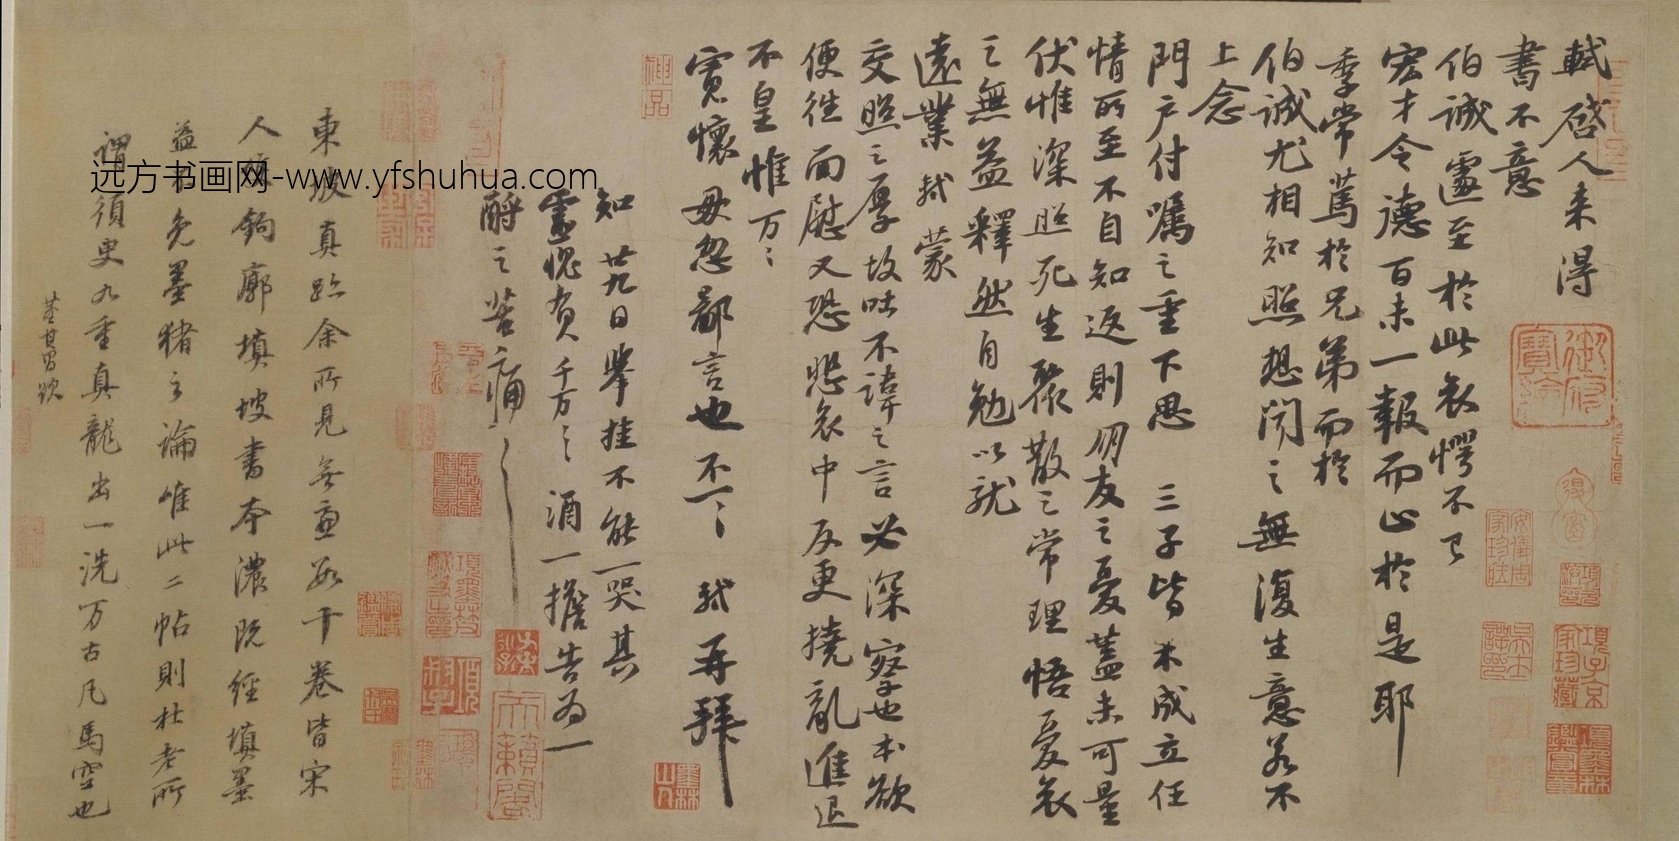 軾啓人来得
書不意
伯誠遽至於此哀愕不已
宏才令德百未一報而止於是耶
季常篤於兄弟而於
伯誠尤相知照想聞之無復生意若不
上念
門户付囑之重下思三子皆未成立任
情所至不自知返則朋友之憂蓋未可量
伏惟深照死生聚散之常理悟憂哀
之無益釋然自勉以就
遠業軾蒙
交照之厚故吐不諱之言必深察也本欲
便往面慰又恐悲哀中反更撓亂進退
不皇惟万万
寬懷毋忽鄙言也不一一軾再拜
知廿九日舉挂不能一哭其
靈愧負千万千万酒一擔告為一
酹之苦痛苦痛
東坡真跡余所見無慮數十卷皆宋
人雙鉤廓填坡書本濃既經填墨
益不免墨猪之論惟此二帖則杜老所
謂須臾九重真龍出一洗万古凡馬空也
董其昌跋
远方书画网-www.yfshuhua.com
御府寶繪
項子京家珍藏
項墨林鑑賞章
墨林山人
天籟閣
神品